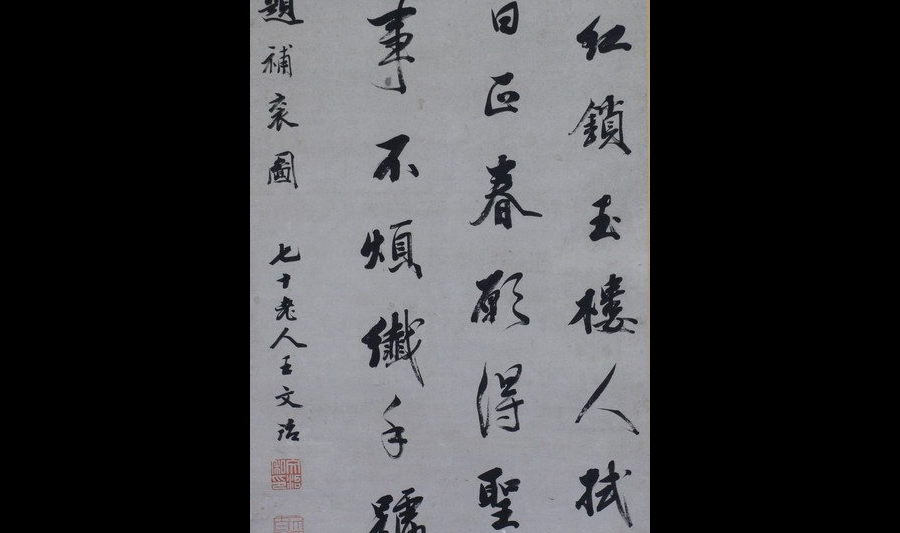 紅鎖玉樓人拭
日正春願得聖
事不煩纖手
題補衮圖 七十老人王文治